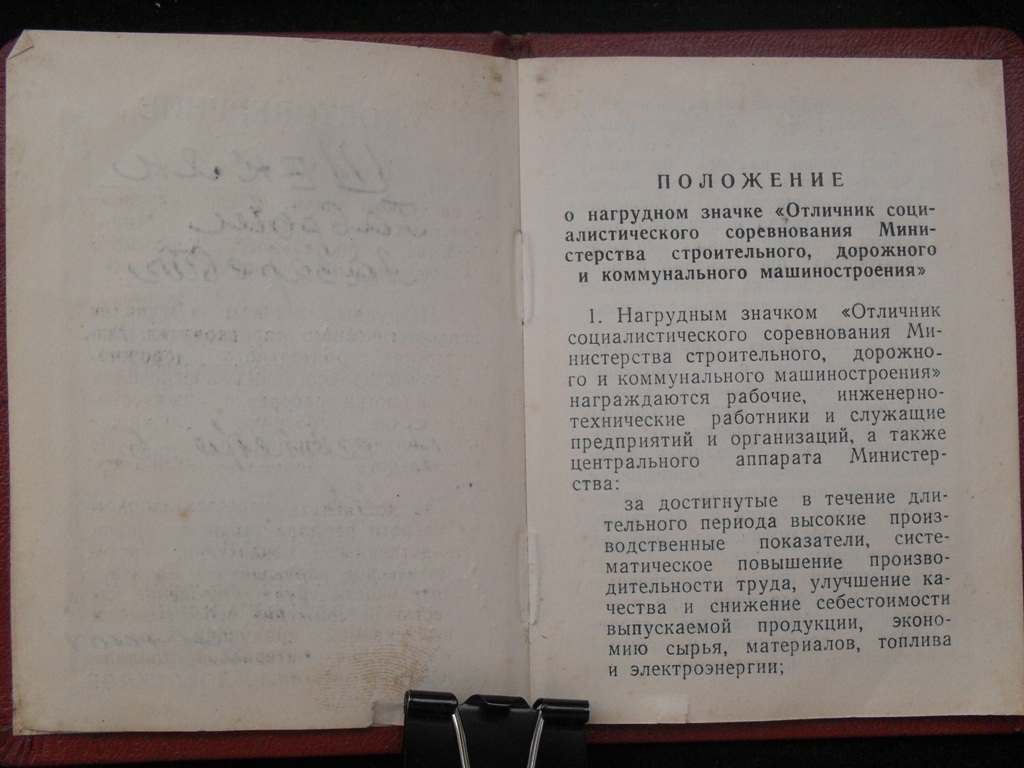 ПОЛОЖЕНИЕ
о нагрудном значке «Отличник соци-
алистического соревнования Мини-
стерства строительного, дорожного
и коммунального машиностроения»
1. Нагрудным значком «Отличник
социалистического соревнования Ми-
нистерства строительного, дорожно-
го и коммунального машиностроения»
награждаются рабочие, инженерно-
технические работники и служащие
предприятий и организаций, а также
центрального аппарата Министер-
ства:
за достигнутые в течение дли-
тельного периода высокие произ-
водственные показатели, систе-
матическое повышение произво-
дительности труда, улучшение ка-
чества и снижение себестоимости
выпускаемой продукции, эконо-
мию сырья, материалов, топлива
и электроэнергии;